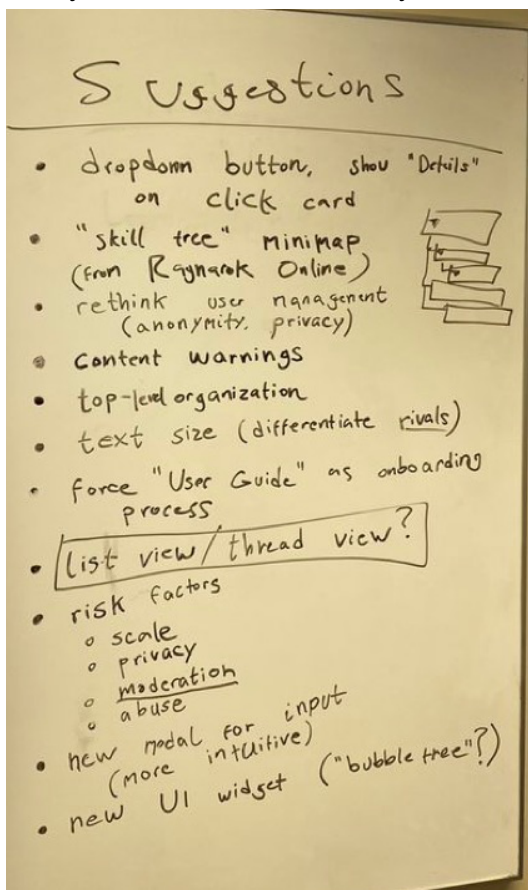 Suggestions
• dropdown button, show "Details"
on click card
• "skill tree" minimap
(from Ragnarok Online)
• rethink user management
(anonymity, privacy)
• content warnings
• top-level organization
• text size (differentiate rivals)
• force "User Guide" as onboarding
process
• list view/thread view?
• risk factors
○ scale
○ privacy
○ moderation
○ abuse
• new modal for input
(more intuitive)
• new UI widget ("bubble tree"?)